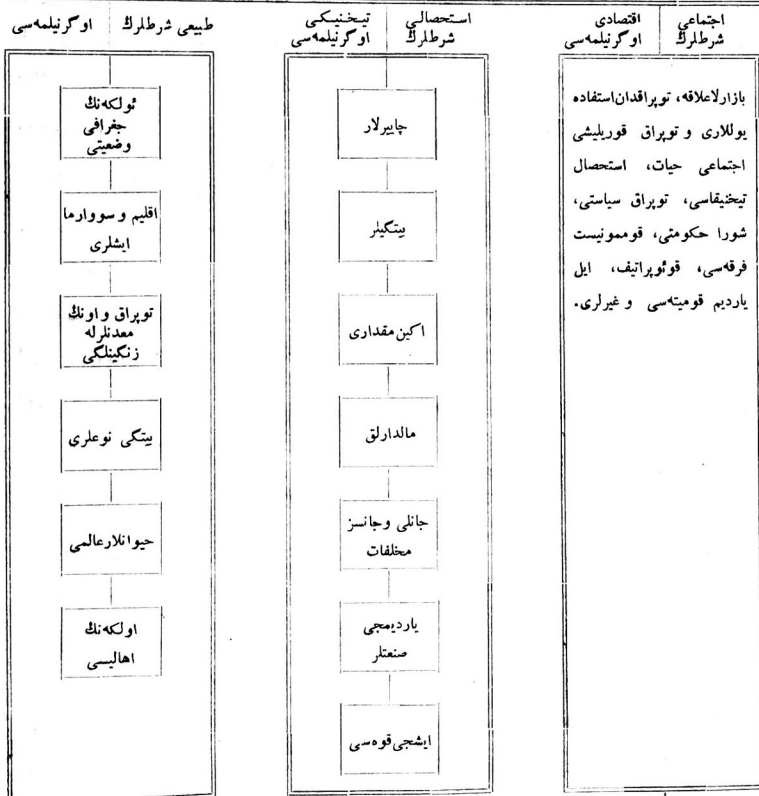 اجتماعي شرطلرڭ اقتصادی اوگرنیلمه‌سی
بازارلاعلاقه، توپراقدان‌استفاده
یوللاری و توپراق قوریلیشی
اجتماعی حیات، استحصال
تیخنیقاسی، توپراق سیاستی،
شورا حکومتی، قوممونیست
فرقه‌سی، قوئوپراتیف، ایل
یاردیم قومیته‌سی و غیرلری.
استحصالي شرطلرڭ تیخنیکی اوگرنیلمه‌سی
چاییرلار
بیتگیلر
اکین مقداری
مالدارلق
جانلی وجانسز
مخلفات
یاردیمجی
صنعتلر
ایشجی قوه‌سی
طبیعی شرطلرڭ اوگرنیلمه‌سی
ئولکه‌نڭ
جغرافی
وضعیتی
اقلیم و سووارما
ایشلری
توپراق و اونڭ
معدنلرله
زنگینلگی
بیتگی نوعلری
حیوانلارعالمی
اولکه‌نڭ
اهالیسی